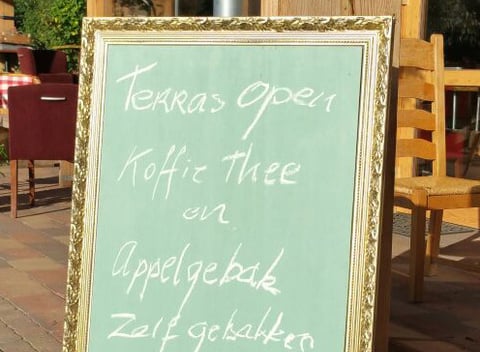 Terras open
Koffie Thee
en
Appelgebak
Zelf gebakken